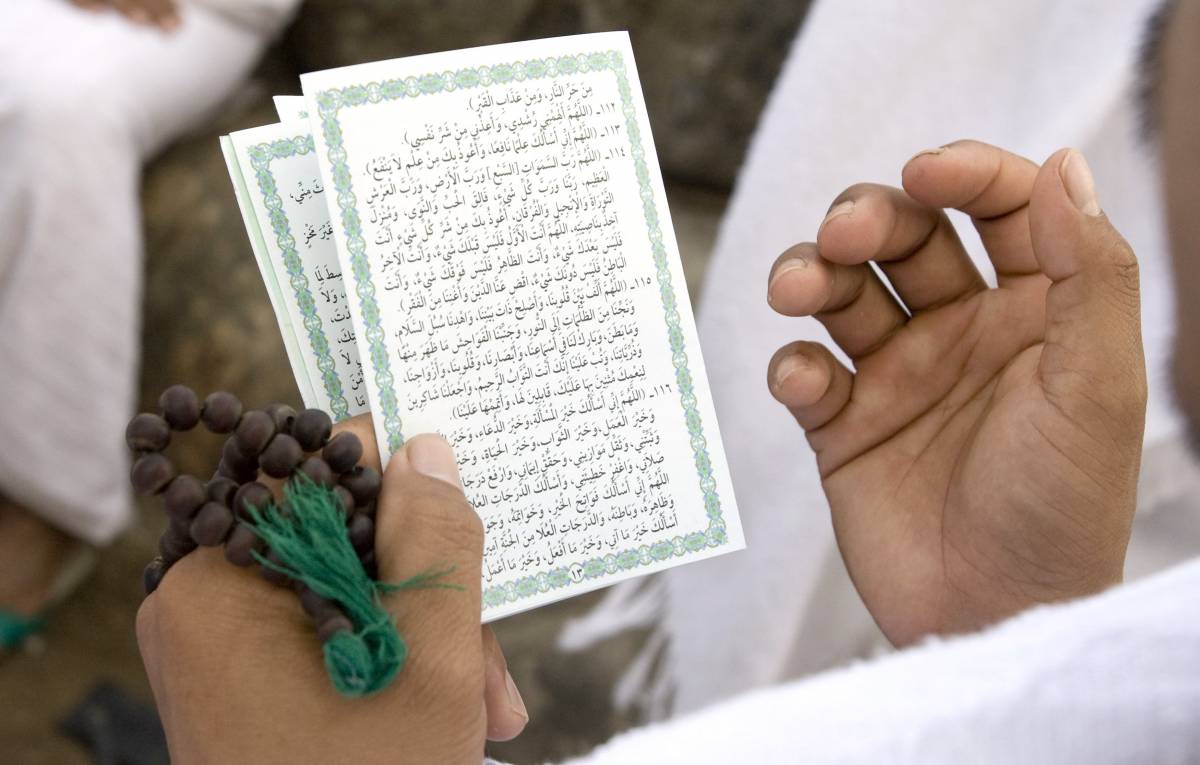 مِنْ حَرِّ النَّارِ، وَمِنْ عَذَابِ الْقَبْرِ).
١١٢ـ (اللَّهُمَّ أَلْهِمْنِي رُشْدِي، وَأَعِذْنِي مِنْ شَرِّ نَفْسِي)
١١٣ـ (اللَّهُمَّ إِنِّي أَسْأَلُكَ عِلْمًا نَافِعًا، وَأَعُوذُ بِكَ مِنْ عِلْمٍ لَا يَنْفَعُ).
١١٤ـ (اللَّهُمَّ رَبَّ السَّمَوَاتِ [السَّبْعِ] وَرَبَّ الْأَرْضِ، وَرَبَّ الْعَرْشِ
الْعَظِيمِ، رَبَّنَا وَرَبَّ كُلِّ شَيْءٍ، فَالِقَ الْحَبِّ وَالنَّوَى، وَمُنْزِلَ
التَّوْرَاةِ وَالْإِنْجِيلِ وَالْفُرْقَانِ، أَعُوذُ بِكَ مِنْ شَرِّ كُلِّ شَيْءٍ أَنْتَ
آخِذٌ بِنَاصِيَتِهِ، اللَّهُمَّ أَنْتَ الْأَوَّلُ فَلَيْسَ قَبْلَكَ شَيْءٌ، وَأَنْتَ الْآخِرُ
فَلَيْسَ بَعْدَكَ شَيْءٌ، وَأَنْتَ الظَّاهِرُ فَلَيْسَ فَوْقَكَ شَيْءٌ، وَأَنْتَ
الْبَاطِنُ فَلَيْسَ دُونَكَ شَيْءٌ، اقْضِ عَنَّا الدَّيْنَ وَأَغْنِنَا مِنَ الْفَقْرِ).
١١٥ـ (اللَّهُمَّ أَلِّفْ بَيْنَ قُلُوبِنَا، وَأَصْلِحْ ذَاتَ بَيْنِنَا، وَاهْدِنَا سُبُلَ السَّلَامِ،
وَنَجِّنَا مِنَ الظُّلُمَاتِ إِلَى النُّورِ، وَجَنِّبْنَا الْفَوَاحِشَ مَا ظَهَرَ مِنْهَا
وَمَا بَطَنَ، وَبَارِكْ لَنَا فِي أَسْمَاعِنَا، وَأَبْصَارِنَا، وَقُلُوبِنَا، وَأَزْوَاجِنَا،
وَذُرِّيَّاتِنَا، وَتُبْ عَلَيْنَا إِنَّكَ أَنْتَ التَّوَّابُ الرَّحِيمُ، وَاجْعَلْنَا شَاكِرِينَ
لِنِعَمِكَ مُثْنِينَ بِهَا عَلَيْكَ، قَابِلِينَ لَهَا، وَأَتِمَّهَا عَلَيْنَا).
١١٦ـ (اللَّهُمَّ إِنِّي أَسْأَلُكَ خَيْرَ الْمَسْأَلَةِ، وَخَيْرَ الدُّعَاءِ، وَخَيْرَ
وَخَيْرَ الْعَمَلِ، وَخَيْرَ الثَّوَابِ، وَخَيْرَ الْحَيَاةِ، وَخَيْرَ
وَثَبِّتْنِي، وَثَقِّلْ مَوَازِينِي، وَحَقِّقْ إِيمَانِي، وَارْفَعْ دَرَجَا
صَلَاتِي، وَاغْفِرْ خَطِيئَتِي، وَأَسْأَلُكَ الدَّرَجَاتِ الْعُلَا
اللَّهُمَّ إِنِّي أَسْأَلُكَ فَوَاتِحَ الْخَيْرِ، وَخَوَاتِمَهُ، وَجَوَ
وَظَاهِرَهُ، وَبَاطِنَهُ، وَالدَّرَجَاتِ الْعُلَا مِنَ الْجَنَّةِ آمِينَ
أَسْأَلُكَ خَيْرَ مَا آتِي، وَخَيْرَ مَا أَفْعَلُ، وَخَيْرَ مَا أَعْمَلُ،
١٣